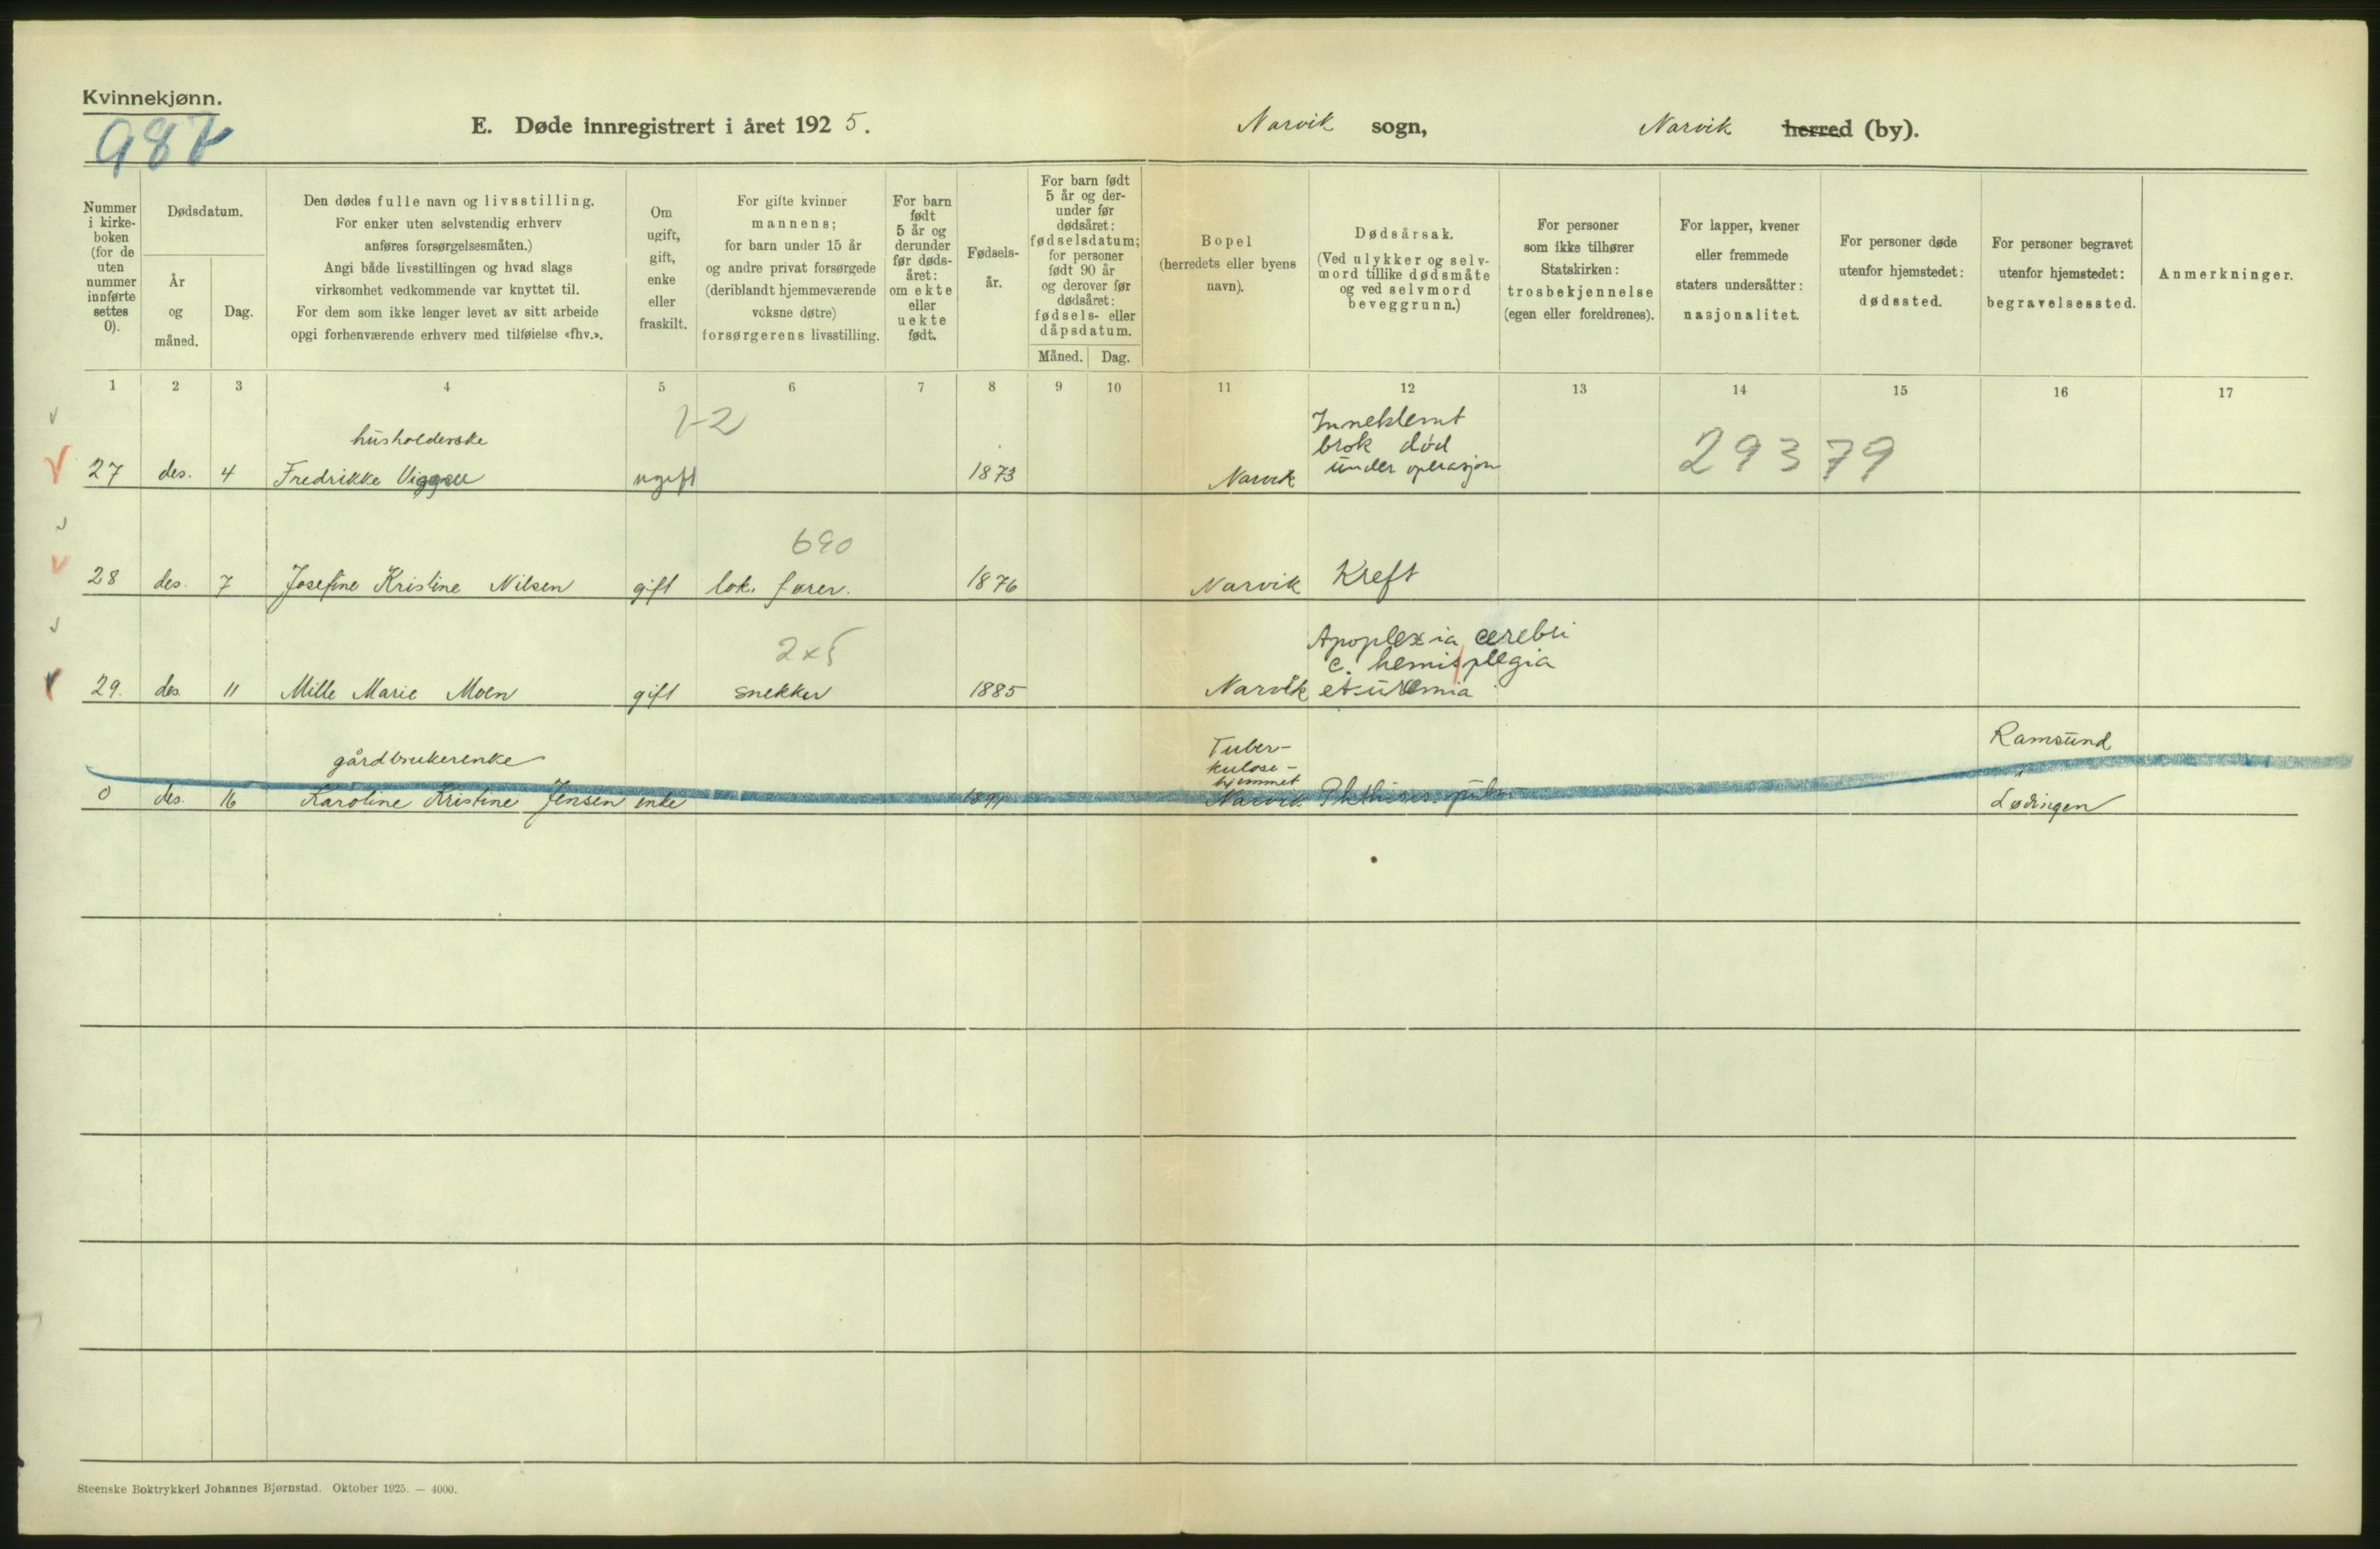 Kvinnekjønn.
E. Døde innregistrert i året 1925.
Narvik sogn,
Narvik herred (by).
Nummer i kirke-
boken
(for de
uten
nummer
innførte
settes
0).
Dødsdatum.
År
og
måned.
Dag.
Den dødes fulle navn og livsstilling.
For enker uten selvstendig erhverv
anføres forsørgelsesmåten.)
Angi både livsstillingen og hvad slags
virksomhet vedkommende var knyttet til.
For dem som ikke lenger levet av sitt arbeide
opgi forhenværende erhverv med tilføielse «fhv.».
Om
ugift,
gift,
enke
eller
fraskilt.
For gifte kvinner
mannens;
for barn under 15 år
og andre privat forsørgede
(deriblandt hjemmeværende
voksne døtre)
forsørgerens livsstilling.
For barn
født
5 år og
derunder
før døds-
året:
om ekte
eller
uekte
født.
Fødsels-
år.
For barn født
5 år og der-
under før
dødsåret:
fødselsdatum;
for personer
født 90 år
og derover før
dødsåret:
fødsels- eller
dåpsdatum.
Måned. Dag.
Bopel
(herredets eller byens
navn).
Dødsårsak.
(Ved ulykker og selv-
mord tillike dødsmåte
og ved selvmord
beveggrunn.)
For personer
som ikke tilhører
Statskirken:
trosbekjennelse
(egen eller foreldrenes).
For lapper, kvener
eller fremmede
staters undersåtter:
nasjonalitet.
For personer døde
utenfor hjemstedet:
dødssted.
For personer begravet
utenfor hjemstedet:
begravelsessted.
Anmerkninger.
1 2 3 4 5 6 7 8 9 10 11 12 13 14 15 16 17
husholderske
Inneklemt
brok død
under operasjon
29379
27 des. 4 Fredrikke ugift 1873 Narvik
690
28 des. 7 Josefine Kristine Nilsen gift lok. fører. 1876 Narvik Kreft
2x5
Apoplexia cerebri
c. hemisplegia
29. des 11 Mille Marie Moen gift snekker 1885 Narvik et uremia
gårdbrukerenke
Tuber-
kulose-
hjemmet
Ramsund
0 des. 16 Karoline Kristine Jensen enke Narvik Lødingen
Steenske Boktrykkeri Johannes Bjørnstad. Oktober 1925. — 4000.